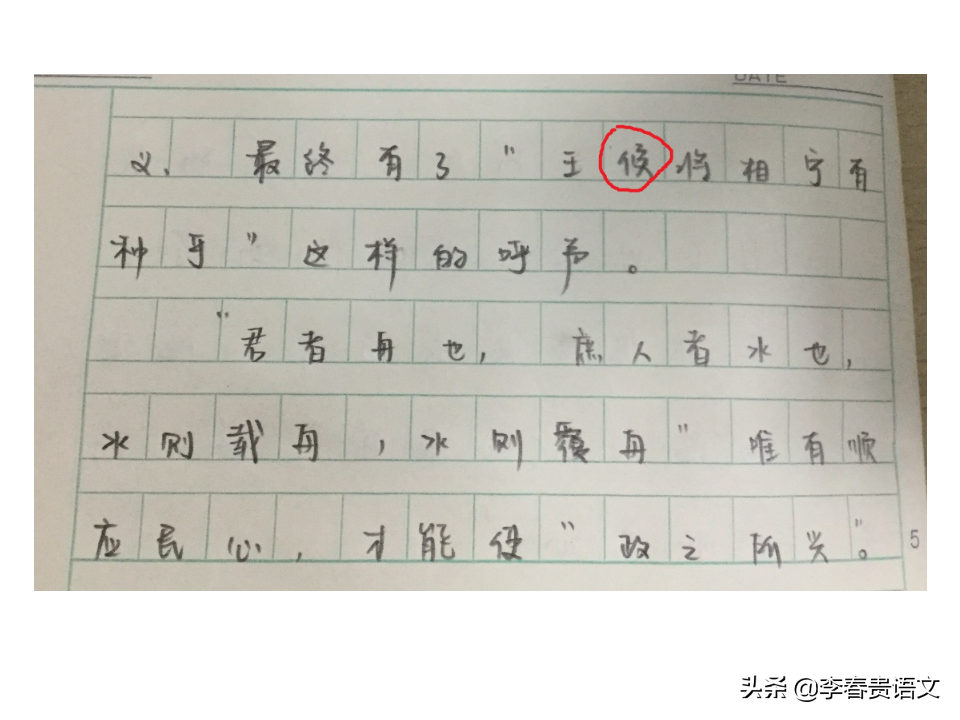 DATE
义，最终有了“王候将相宁有
种乎”这样的呼声。
“君者舟也，庶人者水也，
水则载舟，水则覆舟”唯有顺
应民心，才能使“政之所兴”。
5
头条 @李春贵语文